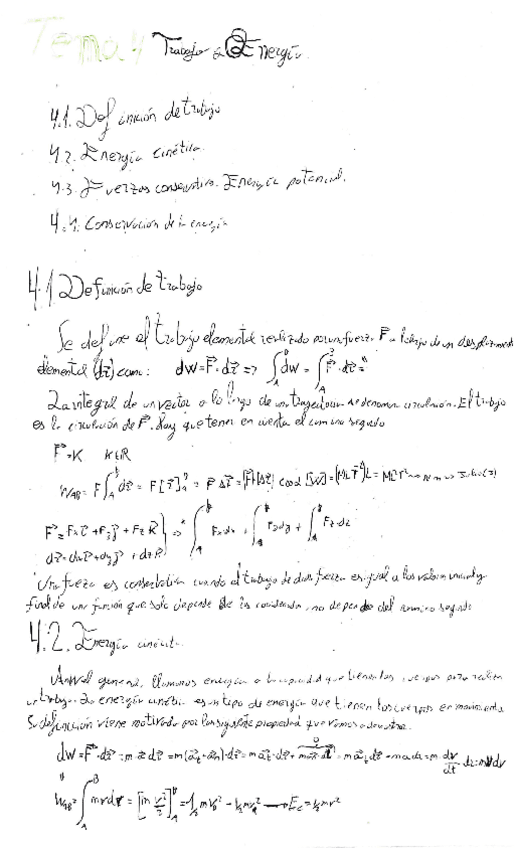 Tema 4 Trabajo y Energía
4.1. Definición de trabajo
4.2. Energía cinética.
4.3. Fuerzas conservativas. Energía potencial.
4.4. Conservación de la energía
4.1 Definición de trabajo
Se define el trabajo elemental realizado por una fuerza F⃗ a lo largo de un desplazamiento
elemental (dr⃗) como: dW = F⃗·dr⃗ => ∫_A^B dW = ∫_A^B F⃗·dr⃗ =
La integral de un vector a lo largo de una trayectoria se denomina circulación. El trabajo
es la circulación de F⃗. Hay que tener en cuenta el camino seguido
F⃗=K K∈R
F⃗=Fx i⃗+Fy j⃗+Fz k⃗ } => ∫_A^B Fx dx + ∫_A^B Fy dy + ∫_A^B Fz dz
dr⃗=dx i⃗+dy j⃗+dz k⃗
Una fuerza es conservativa cuando el trabajo de dicha fuerza es igual a los valores
final de una función que solo depende de las coordenadas, no depende del camino seguido
4.2. Energía cinética.
A nivel general, llamamos energía a la capacidad que tienen los cuerpos para realizar
un trabajo. La energía cinética es un tipo de energía que tienen los cuerpos en movimiento
Su definición viene motivada por la siguiente propiedad que vamos a demostrar.
dW = F⃗·dr⃗ = m a⃗ dr⃗ = m(a⃗t+a⃗n)·dr⃗ = m a⃗t dr⃗ + m a⃗n dr⃗ = m a⃗t dr⃗ = m dv/dt
W_AB = ∫_A^B mv dv = [m v²/2]_A^B = 1/2 m v_B² - 1/2 m v_A² → Ec = 1/2 mv²